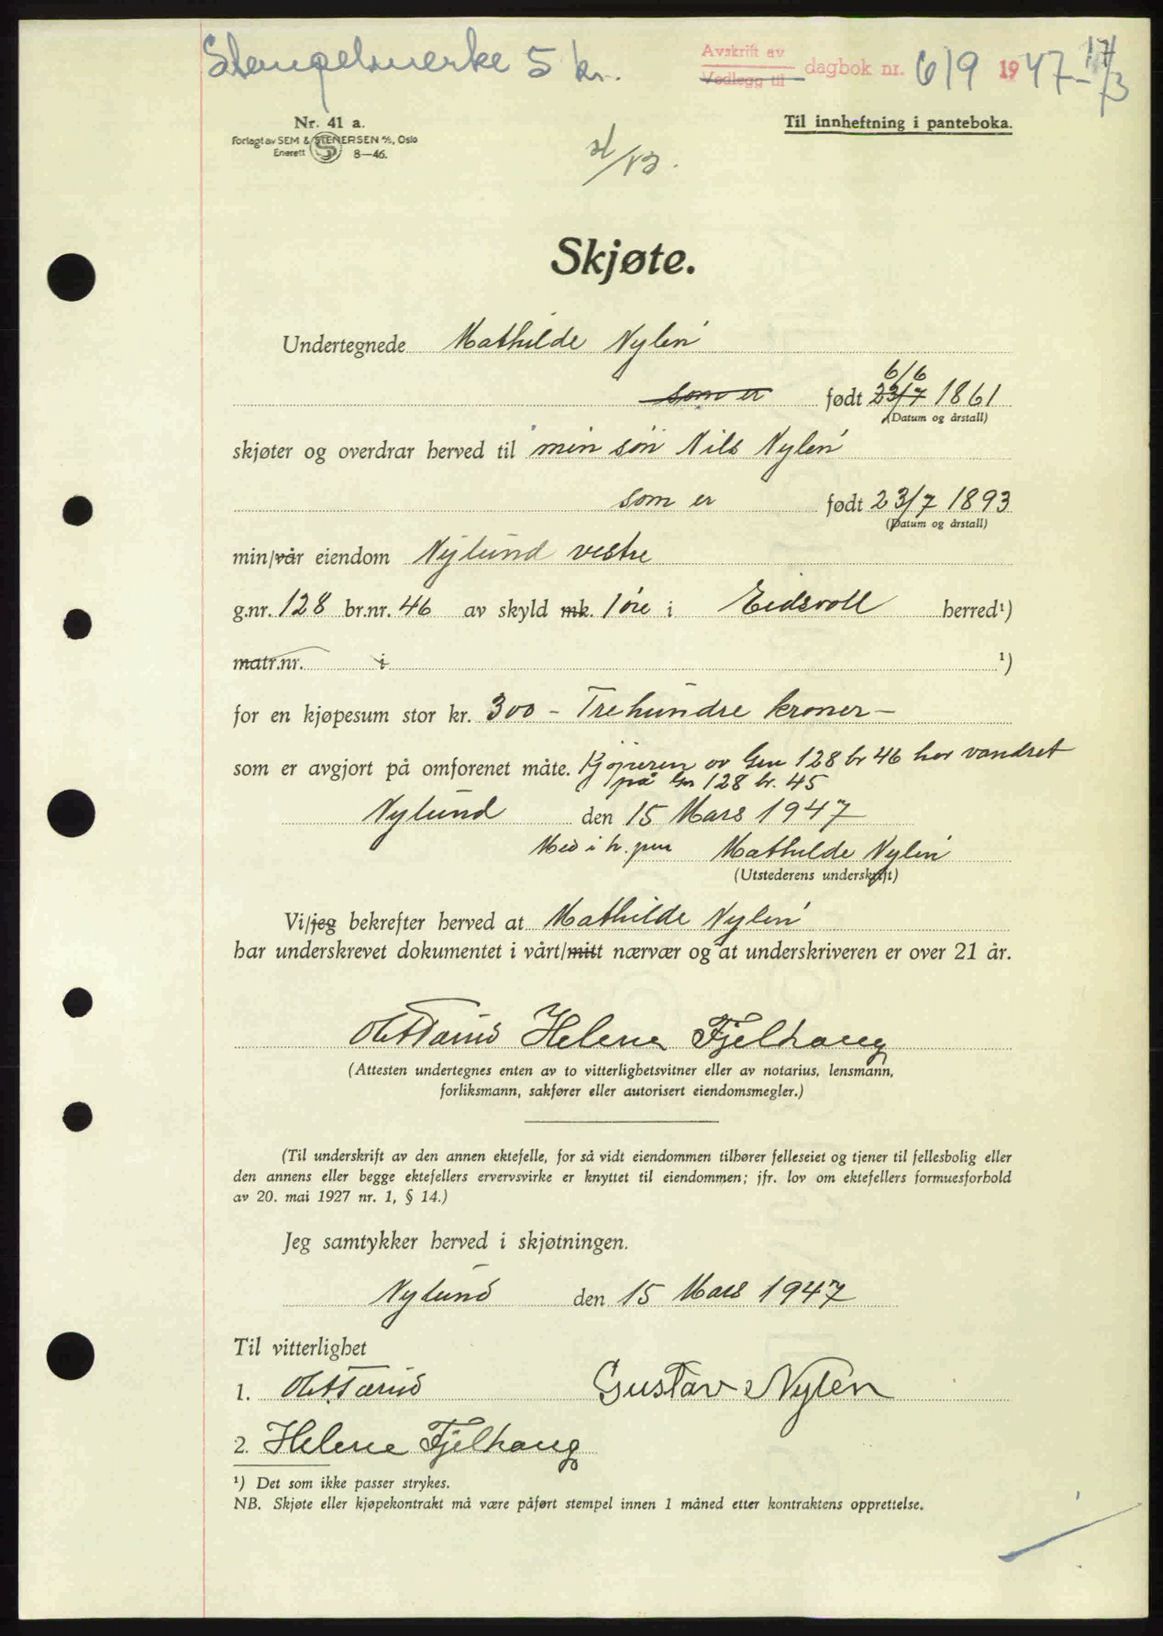 Stempelmerke 5 kr.
Avskrift av
Vedlegg til dagbok nr. 619 1947 - 17/3
Nr. 41 a.
Forlagt av SEM & STENERSEN A/S, Oslo
Enerett 8—46.
Til innheftning i panteboka.
Skjøte.
Undertegnede Mathilde Nylén
6/6
som er født 23/7 1861
(Datum og årstall)
skjøter og overdrar herved til min søn Nils Nylén
som er født 23/7 1893
(Datum og årstall)
min/vår eiendom Nylund vestre
g.nr. 128 br.nr. 46 av skyld mk. 1 øre i Eidsvoll herred¹)
matr.nr. i ¹)
for en kjøpesum stor kr. 300 - Trehundre kroner -
som er avgjort på omforenet måte. Kjøperen av Gnr 128 br 46 har vandret
på Gnr 128 br. 45
Nylund den 15 Mars 1947
Med i h. pen Mathilde Nylén
(Utstederens underskrift)
Vi/jeg bekrefter herved at Mathilde Nylén
har underskrevet dokumentet i vårt/mitt nærvær og at underskriveren er over 21 år.
Helene Fjelhaug
(Attesten undertegnes enten av to vitterlighetsvitner eller av notarius, lensmann,
forliksmann, sakfører eller autorisert eiendomsmegler.)
(Til underskrift av den annen ektefelle, for så vidt eiendommen tilhører felleseiet og tjener til fellesbolig eller
den annens eller begge ektefellers ervervsvirke er knyttet til eiendommen; jfr. lov om ektefellers formuesforhold
av 20. mai 1927 nr. 1, § 14.)
Jeg samtykker herved i skjøtningen.
Nylund den 15 Mars 1947
Til vitterlighet
1. Gustav Nylén
2. Helene Fjelhaug
¹) Det som ikke passer strykes.
NB. Skjøte eller kjøpekontrakt må være påført stempel innen 1 måned etter kontraktens opprettelse.